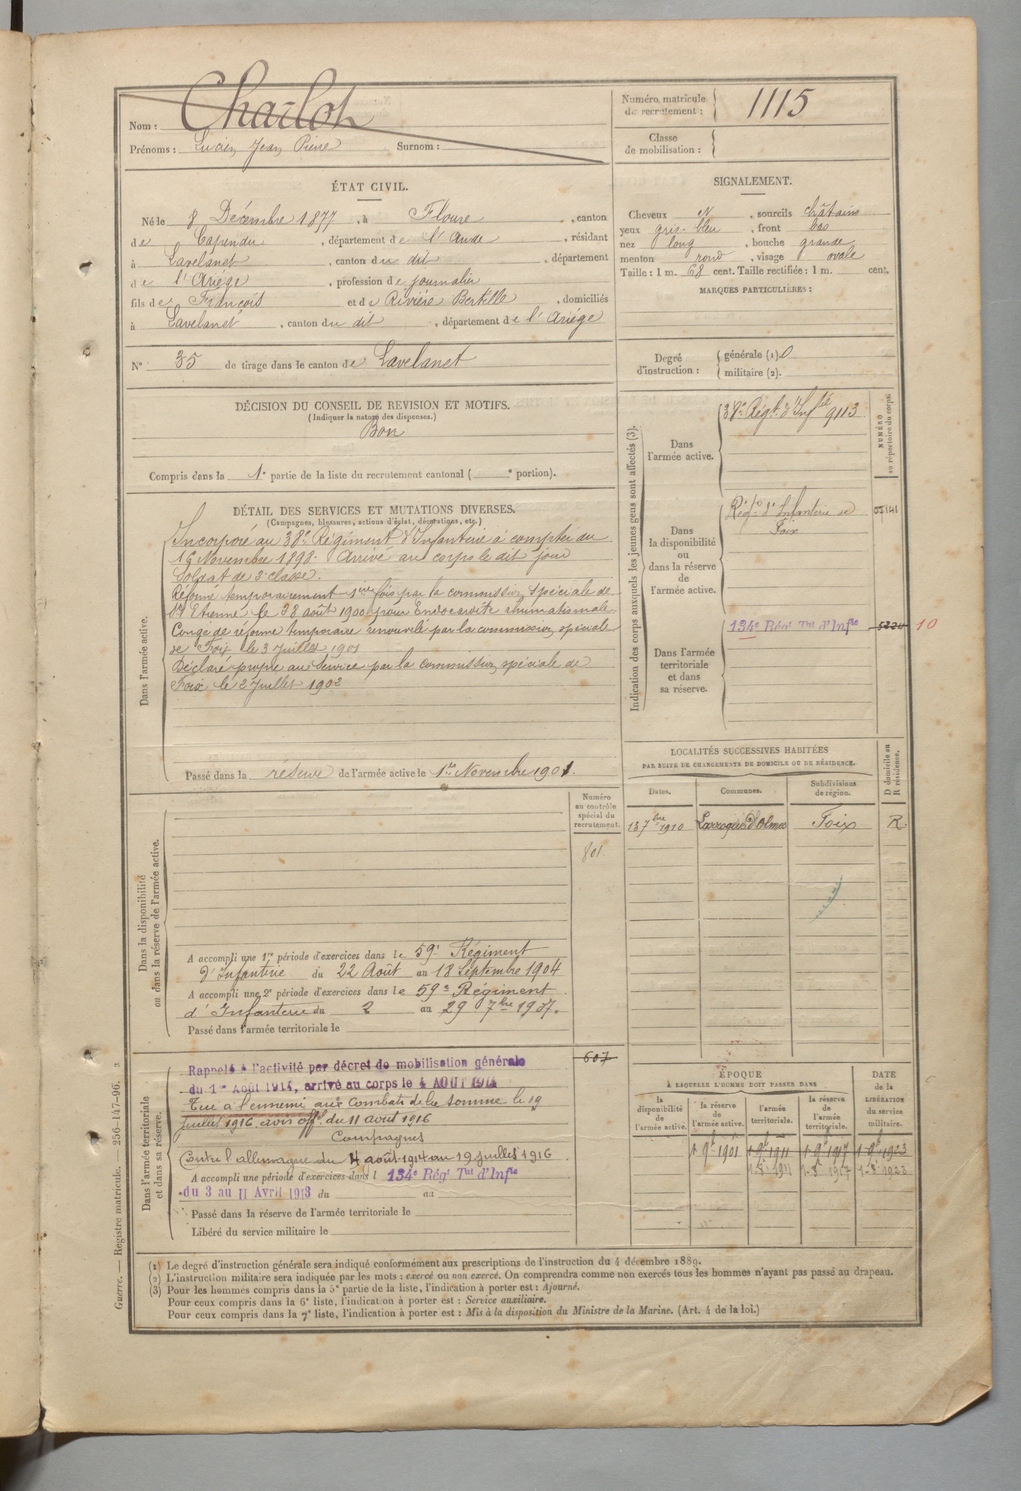 Nom : Charlot
Prénoms : Lucien Jean Pierre Surnom :
Numéro matricule du recrutement : 1115
Classe de mobilisation :
ÉTAT CIVIL.
Né le 8 Décembre 1877, à Floure, canton
de Capendu, département de l'Aude, résidant
à Lavelanet, canton du dit, département
de l'Ariège, profession de journalier
fils de François et de Rivière Bertille, domiciliés
à Lavelanet, canton du dit, département de l'Ariége
N° 35 de tirage dans le canton de Lavelanet
SIGNALEMENT.
Cheveux N, sourcils châtains
yeux gris-bleu, front bas
nez long, bouche grande
menton rond, visage ovale
Taille : 1 m. 68 cent. Taille rectifiée : 1 m. cent.
MARQUES PARTICULIÈRES :
Degré d'instruction : générale (1). 0
militaire (2).
DÉCISION DU CONSEIL DE REVISION ET MOTIFS.
(Indiquer la nature des dispenses.)
Bon
Compris dans la 1e partie de la liste du recrutement cantonal ( e portion).
DÉTAIL DES SERVICES ET MUTATIONS DIVERSES.
(Campagnes, blessures, actions d'éclat, décorations, etc.)
Dans l'armée active.
Incorporé au 38e Régiment d'Infanterie à compter du
16 Novembre 1898. Arrivé au corps le dit jour
Soldat de 2e classe.
Réformé temporairement 1ère fois par la commission spéciale de
St Etienne le 28 août 1900 pour Endocardite rhumatismale
Congé de réforme temporaire renouvelé par la commission spéciale
de Foix le 3 Juillet 1901
Déclaré propre au service par la commission spéciale de
Foix le 2 Juillet 1902
Passé dans la réserve de l'armée active le 1er Novembre 1901.
Indication des corps auxquels les jeunes gens sont affectés (3).
NUMÉRO au répertoire du corps.
Dans l'armée active.
38e Régt. d'Infie 9113
Dans la disponibilité ou dans la réserve de l'armée active.
Régt d'Infanterie de
Foix
Dans l'armée territoriale et dans sa réserve.
134e Rég' Tal d'Infie 5220 10
LOCALITÉS SUCCESSIVES HABITÉES
PAR SUITE DE CHANGEMENTS DE DOMICILE OU DE RÉSIDENCE.
Dates. Communes. Subdivisions de région. D domicile ou R résidence.
13 7bre 1910 Laroque d'Olmes Foix R.
Numéro au contrôle spécial du recrutement.
801
Dans la disponibilité ou dans la réserve de l'armée active.
A accompli une 1re période d'exercices dans le 59e Régiment
d'Infanterie du 22 Août au 18 Septembre 1904
A accompli une 2e période d'exercices dans le 59e Régiment
d'Infanterie du 2 au 29 7bre 1907.
Passé dans l'armée territoriale le
607
Dans l'armée territoriale et dans sa réserve.
Rappelé à l'activité par décret de mobilisation générale
du 1er Août 1914, arrivé au corps le 4 AOUT 1914
Tué à l'ennemi aux Combats de la Somme le 19
juillet 1916, avis offel du 11 août 1916
Campagnes
Contre l'allemagne du 4 août 1914 au 19 juillet 1916
A accompli une période d'exercices dans l 134e Rég' Tal d'Infie
du 3 au 11 Avril 1913 du au
Passé dans la réserve de l'armée territoriale le
Libéré du service militaire le
ÉPOQUE
À LAQUELLE L'HOMME DOIT PASSER DANS
la disponibilité de l'armée active.
la réserve de l'armée active.
l'armée territoriale.
la réserve de l'armée territoriale.
DATE de la LIBÉRATION du service militaire.
(1) Le degré d'instruction générale sera indiqué conformément aux prescriptions de l'instruction du 4 décembre 1889.
(2) L'instruction militaire sera indiquée par les mots : exercé ou non exercé. On comprendra comme non exercés tous les hommes n'ayant pas passé au drapeau.
(3) Pour les hommes compris dans la 5e partie de la liste, l'indication à porter est : Ajourné.
Pour ceux compris dans la 6e liste, l'indication à porter est : Service auxiliaire.
Pour ceux compris dans la 7e liste, l'indication à porter est : Mis à la disposition du Ministre de la Marine. (Art. 4 de la loi.)
Guerre. — Registre matricule. — 256-147-96.